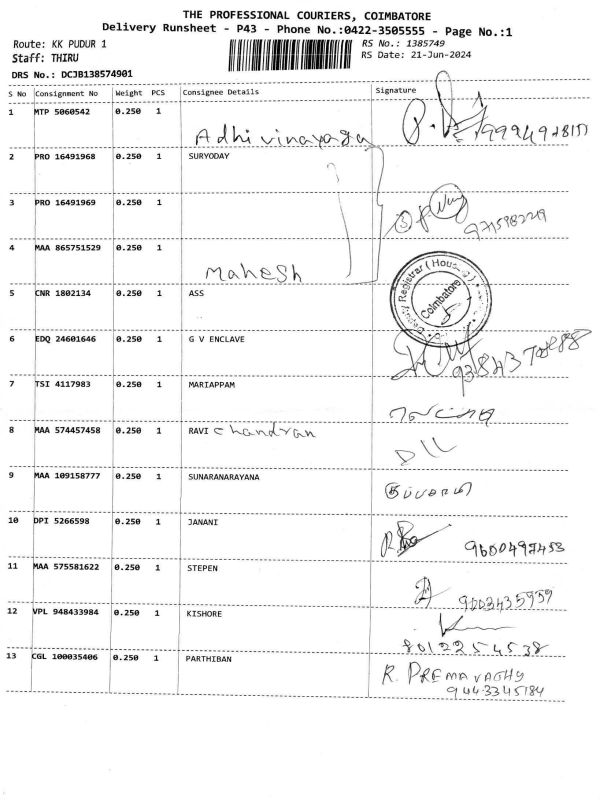 THE PROFESSIONAL COURIERS, COIMBATORE
Delivery Runsheet - P43 - Phone No.:0422-3505555 - Page No.:1
Route: KK PUDUR 1
RS No.: 1385749
Staff: THIRU
RS Date: 21-Jun-2024
DRS No.: DCJB138574901
S No Consignment No Weight PCS Consignee Details Signature
1 MTP 5060542 0.250 1
Adhi vinayaga
2 PRO 16491968 0.250 1 SURYODAY
3 PRO 16491969 0.250 1
4 MAA 865751529 0.250 1
Mahesh
Deputy Registrar (Housing) Coimbatore
5 CNR 1802134 0.250 1 ASS
6 EDQ 24601646 0.250 1 G V ENCLAVE
7 TSI 4117983 0.250 1 MARIAPPAM
8 MAA 574457458 0.250 1 RAVI chandran
9 MAA 109158777 0.250 1 SUNARANARAYANA
10 DPI 5266598 0.250 1 JANANI
9600497453
11 MAA 575581622 0.250 1 STEPEN
9003435959
12 VPL 948433984 0.250 1 KISHORE
8012254538
13 CGL 100035406 0.250 1 PARTHIBAN
R. PREMAVATHY
9443345184